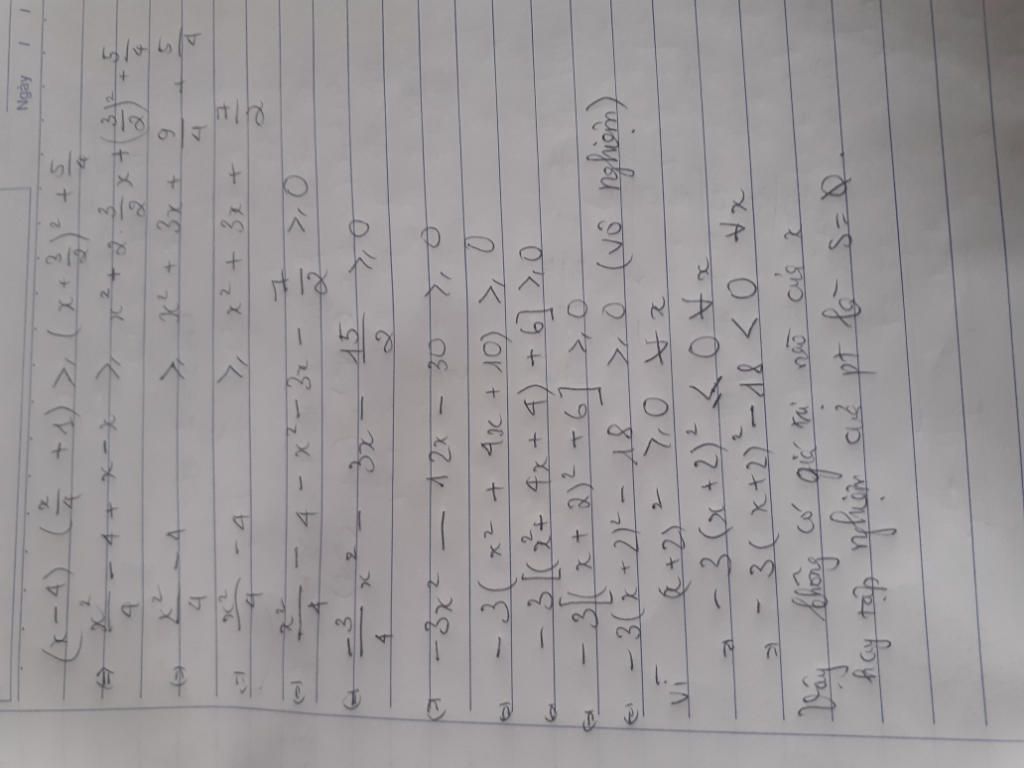 Ngày
(x-4) (x/4 + 1) ≥ (x + 3/2)² + 5/4
⇔ x²/4 - 4 + x - x ≥ x² + 2·3/2 x + (3/2)² + 5/4
⇔ x²/4 - 4 ≥ x² + 3x + 9/4 + 5/4
⇔ x²/4 - 4 ≥ x² + 3x + 7/2
⇔ x²/4 - 4 - x² - 3x - 7/2 ≥ 0
⇔ -3/4 x² - 3x - 15/2 ≥ 0
⇔ -3x² - 12x - 30 ≥ 0
⇔ -3(x² + 4x + 10) ≥ 0
⇔ -3[(x² + 4x + 4) + 6] ≥ 0
⇔ -3[(x + 2)² + 6] ≥ 0
⇔ -3(x + 2)² - 18 ≥ 0 (vô nghiệm)
Vì (x+2)² ≥ 0 ∀ x
⇒ -3(x+2)² ≤ 0 ∀ x
⇒ -3(x+2)² - 18 < 0 ∀ x
Vậy không có giá trị nào của x
hay tập nghiệm của pt là S = ∅.